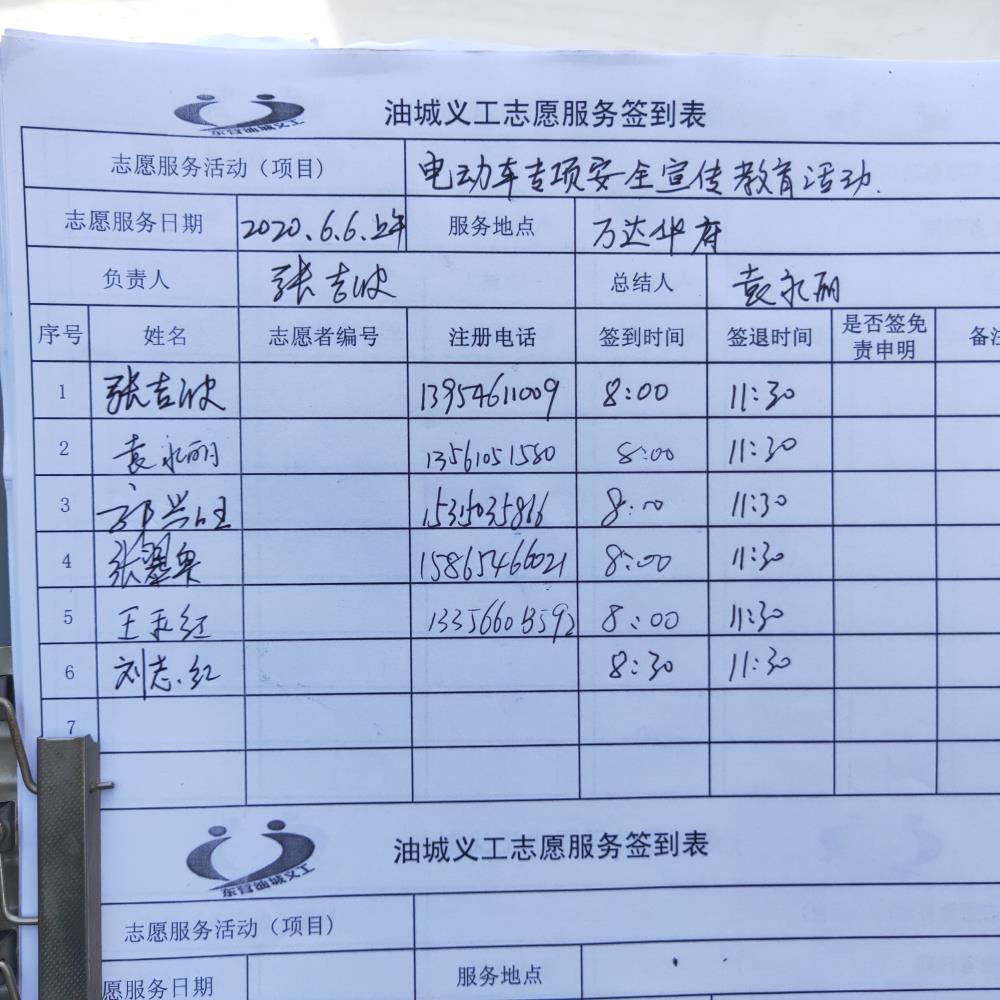 东营油城义工
油城义工志愿服务签到表
志愿服务活动（项目） 电动车专项安全宣传教育活动.
志愿服务日期 2020.6.6.上午 服务地点 万达华府
负责人 张吉波 总结人 袁永丽
序号 姓名 志愿者编号 注册电话 签到时间 签退时间 是否签免责申明 备注
1 张吉波 13954611009 8:00 11:30
2 袁永丽 13561051580 8:00 11:30
3 郭兴旺 15315035816 8:00 11:30
4 张翠奥 15865466021 8:00 11:30
5 王永红 13356603592 8:00 11:30
6 刘志红 8:30 11:30
7
东营油城义工
油城义工志愿服务签到表
志愿服务活动（项目）
愿服务日期 服务地点